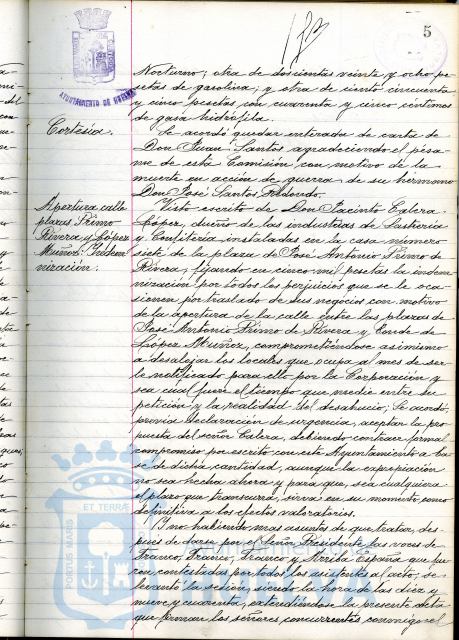 5
AYUNTAMIENTO DE HUELVA
Nocturno; otra de doscientas veinte y ocho pe-
setas de gasolina; y otra de ciento cincuenta
y cinco pesetas con cuarenta y cinco céntimos
de gasa hidrófila.
Cortesías.
Se acordó quedar enterada de carta de
Don Juan Santos agradeciendo el pésa-
me de esta Comisión con motivo de la
muerte en acción de guerra de su hermano
Don José Santos Redondo.
Apertura calle
plazas Primo
Rivera y López
Muñoz. Indem
nización.
Visto escrito de Don Jacinto Ealera
López, dueño de las industrias de Sastrería
y Confitería instaladas en la casa número
siete de la plaza de José Antonio Primo de
Rivera, fijando en cinco mil pesetas la indem
nización por todos los perjuicios que se le oca
sionen por traslado de sus negocios con motivo
de la apertura de la calle entre las plazas de
José Antonio Primo de Rivera y Conde de
López Muñoz, comprometiéndose asimismo
a desalojar los locales que ocupa al mes de ser
le notificado para ello por la Corporación y
sea cual fuere el tiempo que medie entre su
petición y la realidad del desahucio; Se acordó,
previa declaración de urgencia, aceptar la pro
puesta del señor Ealera, debiendo contraer formal
compromiso por escrito con este Ayuntamiento a ba
se de dicha cantidad, aunque la expropiación
no sea hecha ahora y para que, sea cualquiera
el plazo que transcurra, sirva en su momento como
definitiva a los efectos valoratorios.
Y no habiendo mas asuntos de que tratar, des
pues de darse por el Señor Presidente las voces de
Franco, Franco, Franco y Arriba España que fue
ron contestadas por todos los asistentes al acto, se
levantó la sesión, siendo la hora de las diez y
nueve y cuarenta, extendiéndose la presente acta
que firman los señores concurrentes conmigo el
PORTUS MARIS ET TERRAE